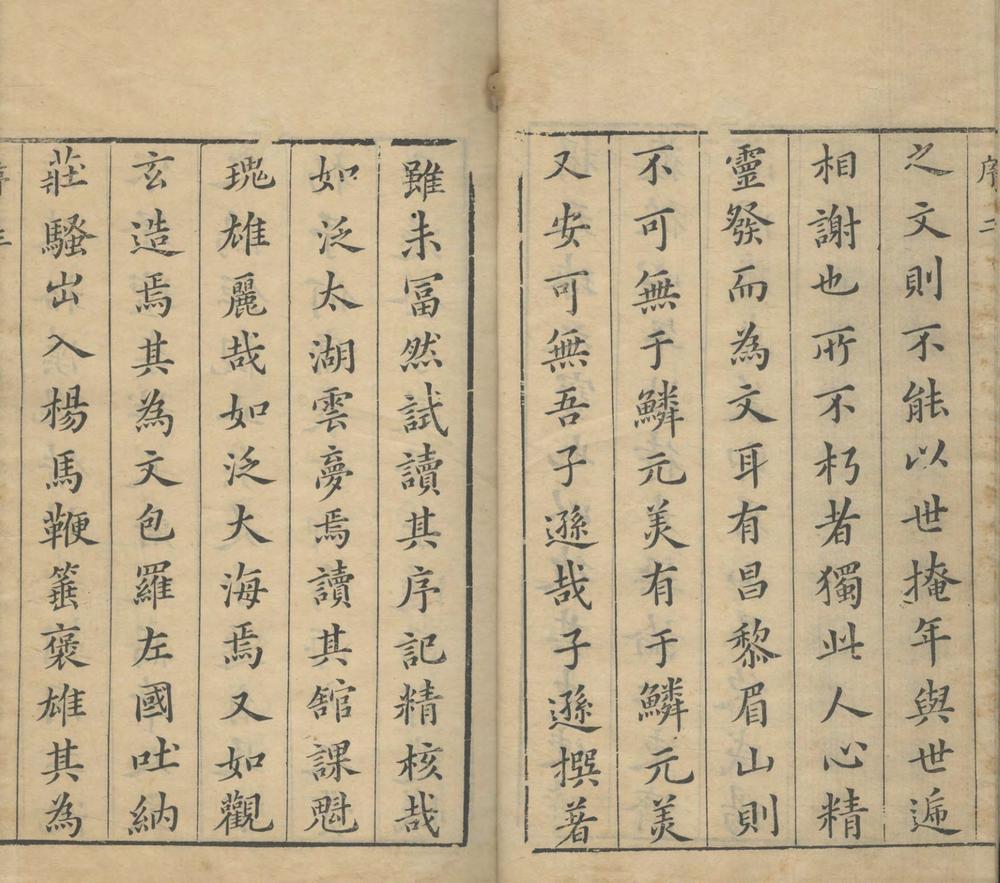 序 二
之文則不能以世掩年與世遞
相謝也所不朽者獨此人心精
靈發而為文耳有昌黎眉山則
不可無于鱗元美有于鱗元美
又安可無吾子遜哉子遜撰著
雖未冨然試讀其序記精核哉
如泛太湖雲夢焉讀其舘課魁
瑰雄麗哉如泛大海焉又如觀
玄造焉其為文包羅左國吐納
莊騷出入楊馬鞭箠褒雄其為